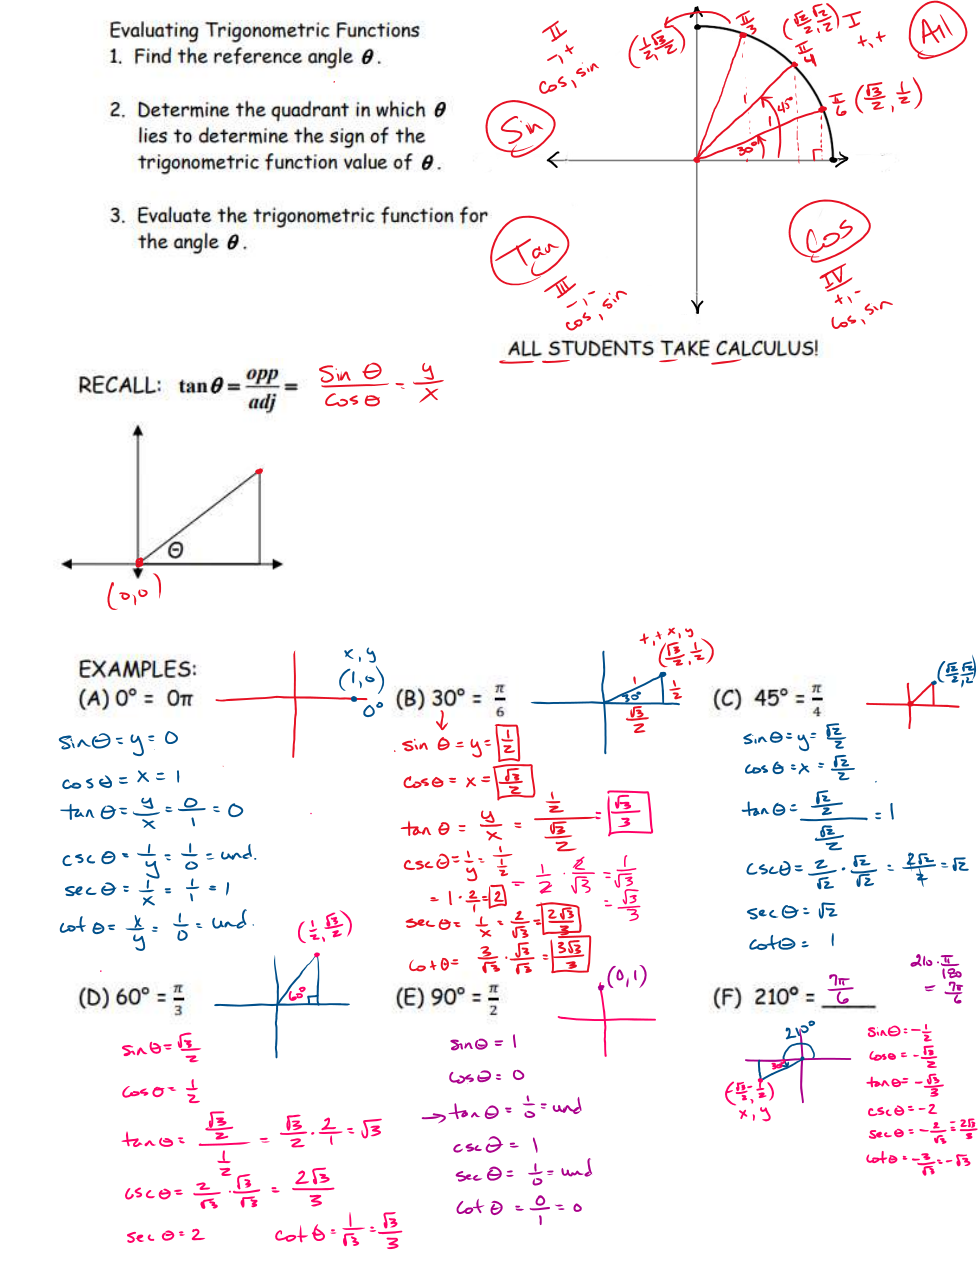 Evaluating Trigonometric Functions
1. Find the reference angle θ.
2. Determine the quadrant in which θ
lies to determine the sign of the
trigonometric function value of θ.
3. Evaluate the trigonometric function for
the angle θ.
II
-,+
cos, sin
Sin
(1/2, √3/2)
π/3
(√2/2, √2/2)
π/4
I
+,+
All
π/6 (√3/2, 1/2)
1
1
45°
30°
Tan
III -,-
cos, sin
Cos
IV
+,-
cos, sin
ALL STUDENTS TAKE CALCULUS!
RECALL: tan θ = opp/adj = Sin θ/Cos θ = y/x
θ
(0,0)
EXAMPLES:
(A) 0° = 0π
x, y
(1,0)
0°
sin θ = y = 0
cos θ = x = 1
tan θ = y/x = 0/1 = 0
csc θ = 1/y = 1/0 = und.
sec θ = 1/x = 1/1 = 1
cot θ = x/y = 1/0 = und.
(B) 30° = π/6
+,+ x, y
(√3/2, 1/2)
1
30°
1/2
√3/2
sin θ = y = 1/2
cos θ = x = √3/2
tan θ = y/x = 1/2 / √3/2 = √3/3
csc θ = 1/y = 1/ 1/2
= 1/2 · 2/√3 = 1/√3
= √3/3
= 1 · 2/1 = 2
sec θ = 1/x = 2/√3 = 2√3/3
cot θ = 3/√3 · √3/√3 = 3√3/3
(C) 45° = π/4
(√2/2, √2/2)
sin θ = y = √2/2
cos θ = x = √2/2
tan θ = √2/2 / √2/2 = 1
csc θ = 2/√2 · √2/√2 = 2√2/2 = √2
sec θ = √2
cot θ = 1
(D) 60° = π/3
(1/2, √3/2)
60°
sin θ = √3/2
cos θ = 1/2
tan θ = √3/2 / 1/2 = √3/2 · 2/1 = √3
csc θ = 2/√3 · √3/√3 = 2√3/3
sec θ = 2
cot θ = 1/√3 = √3/3
(E) 90° = π/2
(0,1)
sin θ = 1
cos θ = 0
→ tan θ = 1/0 = und
csc θ = 1
sec θ = 1/0 = und
cot θ = 0/1 = 0
(F) 210° = 7π/6
210 · π/180
= 7π/6
210°
30°
(-√3/2, -1/2)
x, y
sin θ = -1/2
cos θ = -√3/2
tan θ = -√3/3
csc θ = -2
sec θ = -2/√3 = 2√3/3
cot θ = -3/√3 = -√3